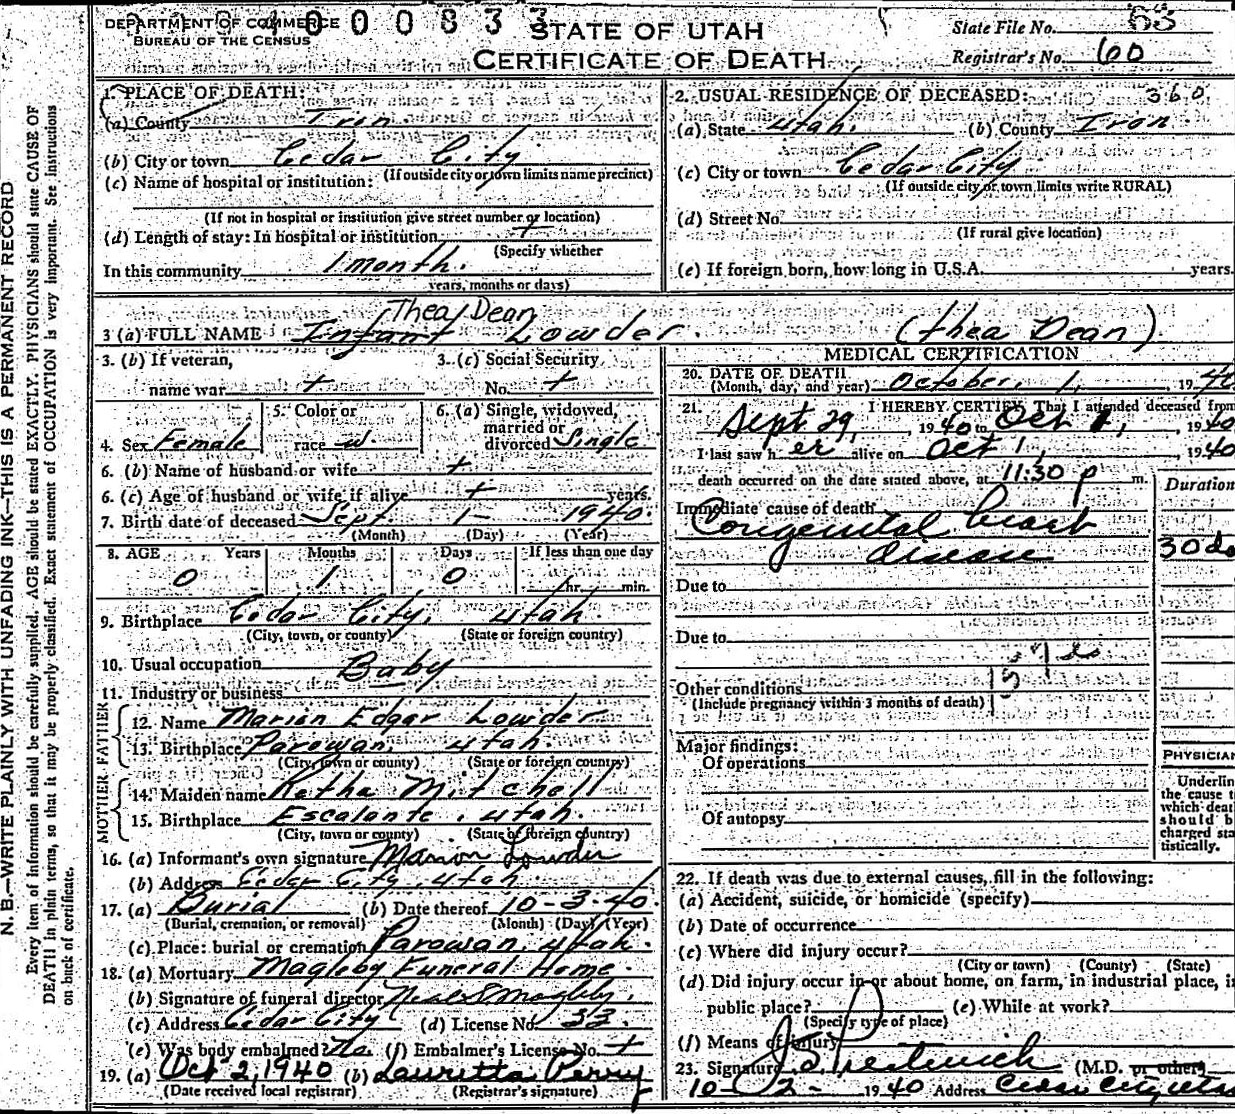 DEPARTMENT OF COMMERCE
BUREAU OF THE CENSUS
400833
STATE OF UTAH
CERTIFICATE OF DEATH
State File No.
Registrar's No. 60
N. B.—WRITE PLAINLY WITH UNFADING INK—THIS IS A PERMANENT RECORD
Every item of information should be carefully supplied. AGE should be stated EXACTLY. PHYSICIANS should state CAUSE OF
DEATH in plain terms, so that it may be properly classified. Exact statement of OCCUPATION is very important. See instructions
on back of certificate.
1. PLACE OF DEATH:
(a) County Iron
(b) City or town Cedar City
(If outside city or town limits name precinct)
(c) Name of hospital or institution:
(If not in hospital or institution give street number or location)
(d) Length of stay: In hospital or institution +
(Specify whether
In this community 1 month.
years, months or days)
2. USUAL RESIDENCE OF DECEASED: 360
(a) State Utah. (b) County Iron
(c) City or town Cedar City
(If outside city or town limits write RURAL)
(d) Street No.
(If rural give location)
(e) If foreign born, how long in U.S.A. years.
Thea Dean
3 (a) FULL NAME Infant Lowder. (Thea Dean)
3. (b) If veteran,
name war +
3. (c) Social Security
No. +
4. Sex Female
5. Color or
race W
6. (a) Single, widowed,
married or
divorced Single
6. (b) Name of husband or wife +
6. (c) Age of husband or wife if alive + years.
7. Birth date of deceased Sept 1- 1940.
(Month) (Day) (Year)
8. AGE Years Months Days If less than one day
0 1 0 hr. min.
9. Birthplace Cedar City, Utah.
(City, town, or county) (State or foreign country)
10. Usual occupation Baby
11. Industry or business
FATHER
12. Name Marion Edgar Lowder
13. Birthplace Parowan, Utah.
(City, town or county) (State or foreign country)
MOTHER
14. Maiden name Retha Mitchell
15. Birthplace Escalante, Utah.
(City, town or county) (State or foreign country)
16. (a) Informant's own signature Marion Lowder
(b) Address Cedar City, Utah
17. (a) Burial (b) Date thereof 10-3-40.
(Burial, cremation, or removal) (Month) (Day) (Year)
(c) Place: burial or cremation Parowan, Utah.
18. (a) Mortuary Magleby Funeral Home.
(b) Signature of funeral director Neal S Magleby.
(c) Address Cedar City (d) License No. 33.
(e) Was body embalmed? No. (f) Embalmer's License No. +
19. (a) Oct 2, 1940 (b) Lauretta Perry
(Date received local registrar) (Registrar's signature)
MEDICAL CERTIFICATION
20. DATE OF DEATH
(Month, day, and year) October, 1, 1940
21. I HEREBY CERTIFY, That I attended deceased from
Sept 29, 1940 to Oct 1, 1940
I last saw h er alive on Oct 1, 1940
death occurred on the date stated above, at 11:30 p m.
Duration
Immediate cause of death
Congenital heart
disease 30 da
Due to
Due to
Other conditions
(Include pregnancy within 3 months of death)
Major findings:
Of operations
Of autopsy
PHYSICIAN
Underlin
the cause t
which deat
should b
charged sta
tistically.
22. If death was due to external causes, fill in the following:
(a) Accident, suicide, or homicide (specify)
(b) Date of occurrence
(c) Where did injury occur?
(City or town) (County) (State)
(d) Did injury occur in or about home, on farm, in industrial place, i
public place? (e) While at work?
(Specify type of place)
(f) Means of injury
23. Signature J S Prestwich (M.D. or other)
10-2- 1940 Address Cedar City Utah